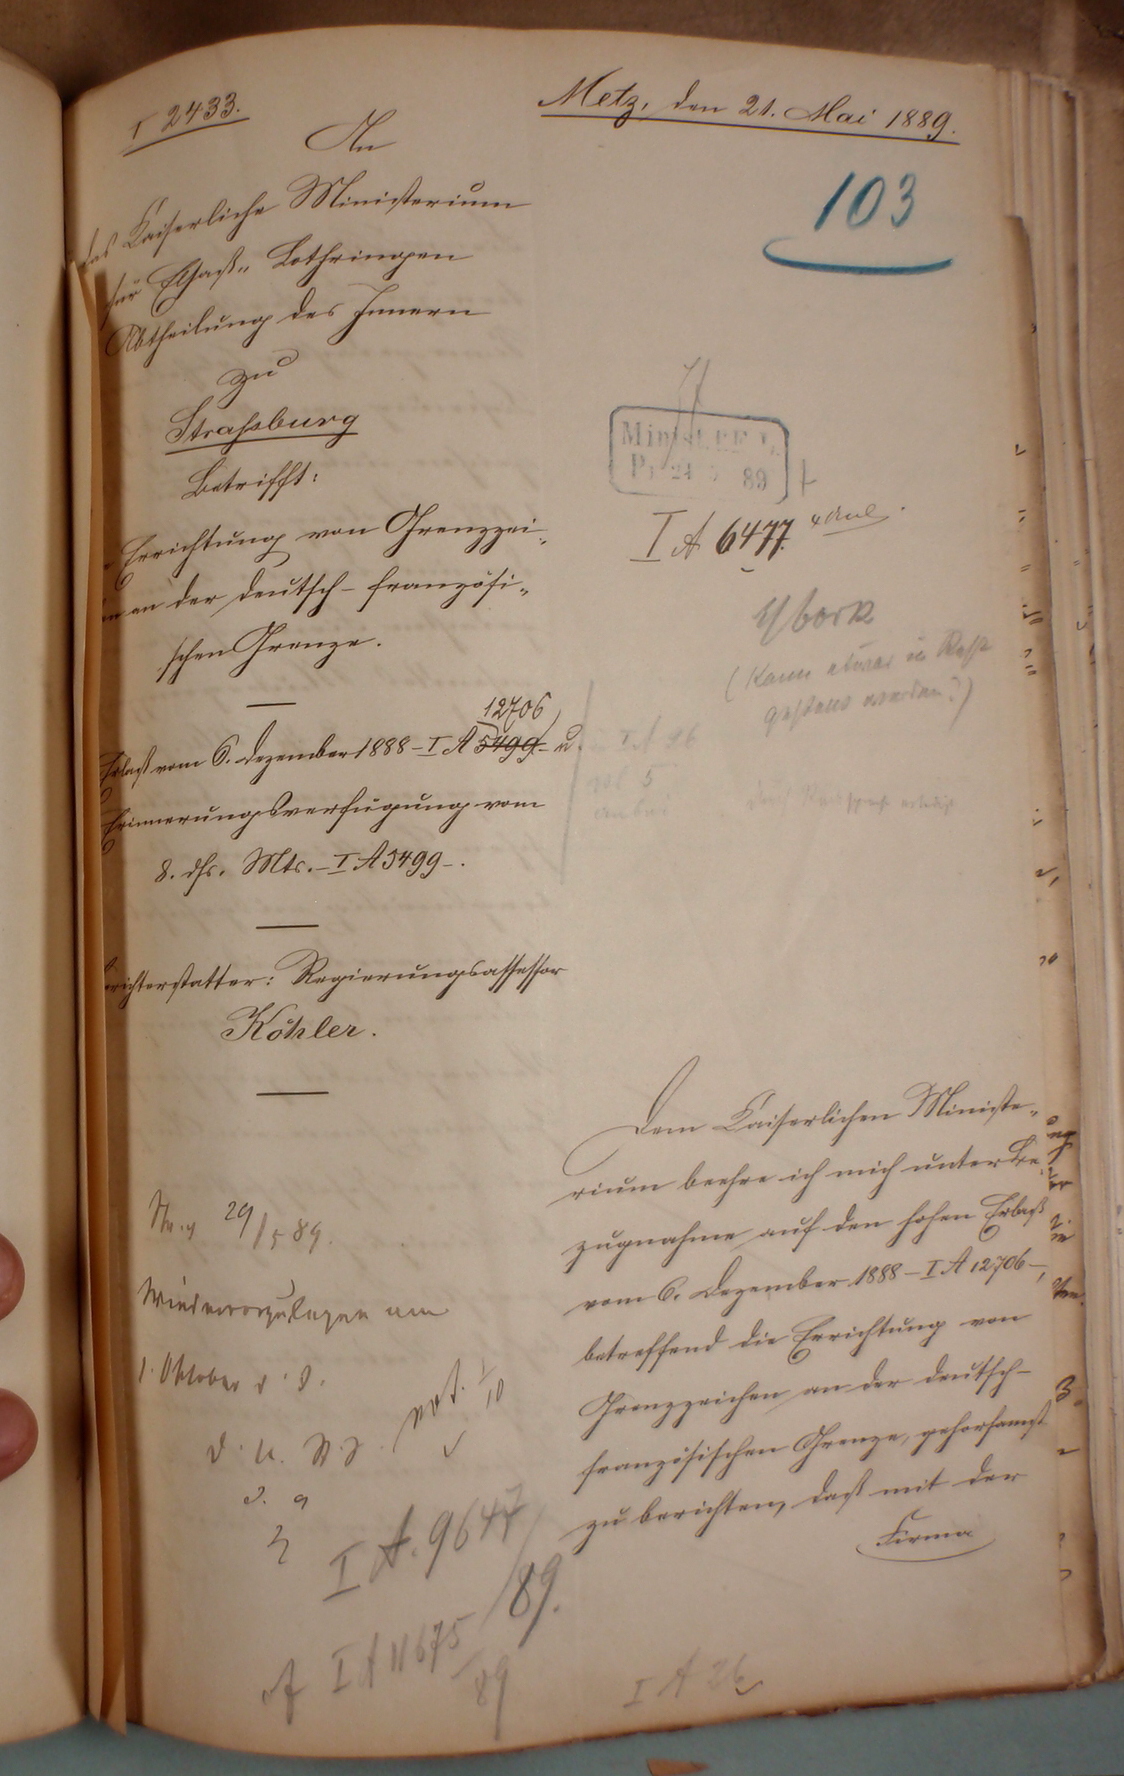 I 2433.
Metz, den 21. Mai 1889.
An
das Kaiserliche Ministerium
für Elsaß-Lothringen
Abtheilung des Innern
zu
Strassburg
Betrifft:
Errichtung von Grenzzei-
an der deutsch-französi-
schen Grenze.
12706
Erlaß vom 6. Dezember 1888 – I A 5499 – u.
Erinnerungsverfügung vom
8. dss. Mts. – I A 5499 –.
Berichterstatter: Regierungsassessor
Köhler.
103
Minist. f. E. L.
Pr 24 5 89
I A 6477. 4 Anl.
(Kann etwas in
werden?)
I A 26
Dem Kaiserlichen Ministe-
rium beehre ich mich unter Be-
zugnahme auf den hohen Erlaß
vom 6. Dezember 1888 – I A 12706 –,
betreffend die Errichtung von
Grenzzeichen an der deutsch-
französischen Grenze, gehorsamst
zu berichten, daß mit der
Firma
29/5 89.
Wiedervorzulegen am
1. Oktober d. J.
I A. 9647/89.
I A 11675/89
I A 26